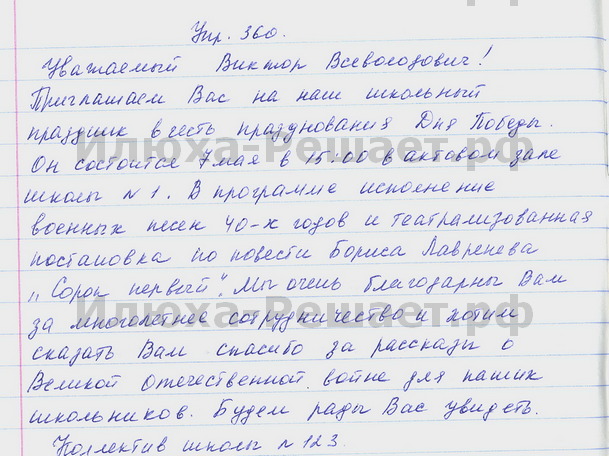 Упр. 360.
Уважаемый Виктор Всеволодович!
Приглашаем Вас на наш школьный
праздник в честь празднования Дня Победы.
Илюха-Решает.рф
Он состоится 7 мая в 15:00 в актовом зале
школы №1. В программе исполнение
военных песен 40-х годов и театрализованная
постановка по повести Бориса Лавренева
„Сорок первый". Мы очень благодарны Вам
Илюха-Решает.рф
за многолетнее сотрудничество и хотим
сказать Вам спасибо за рассказы о
Великой отечественной войне для наших
школьников. Будем рады Вас увидеть.
Коллектив школы №123.